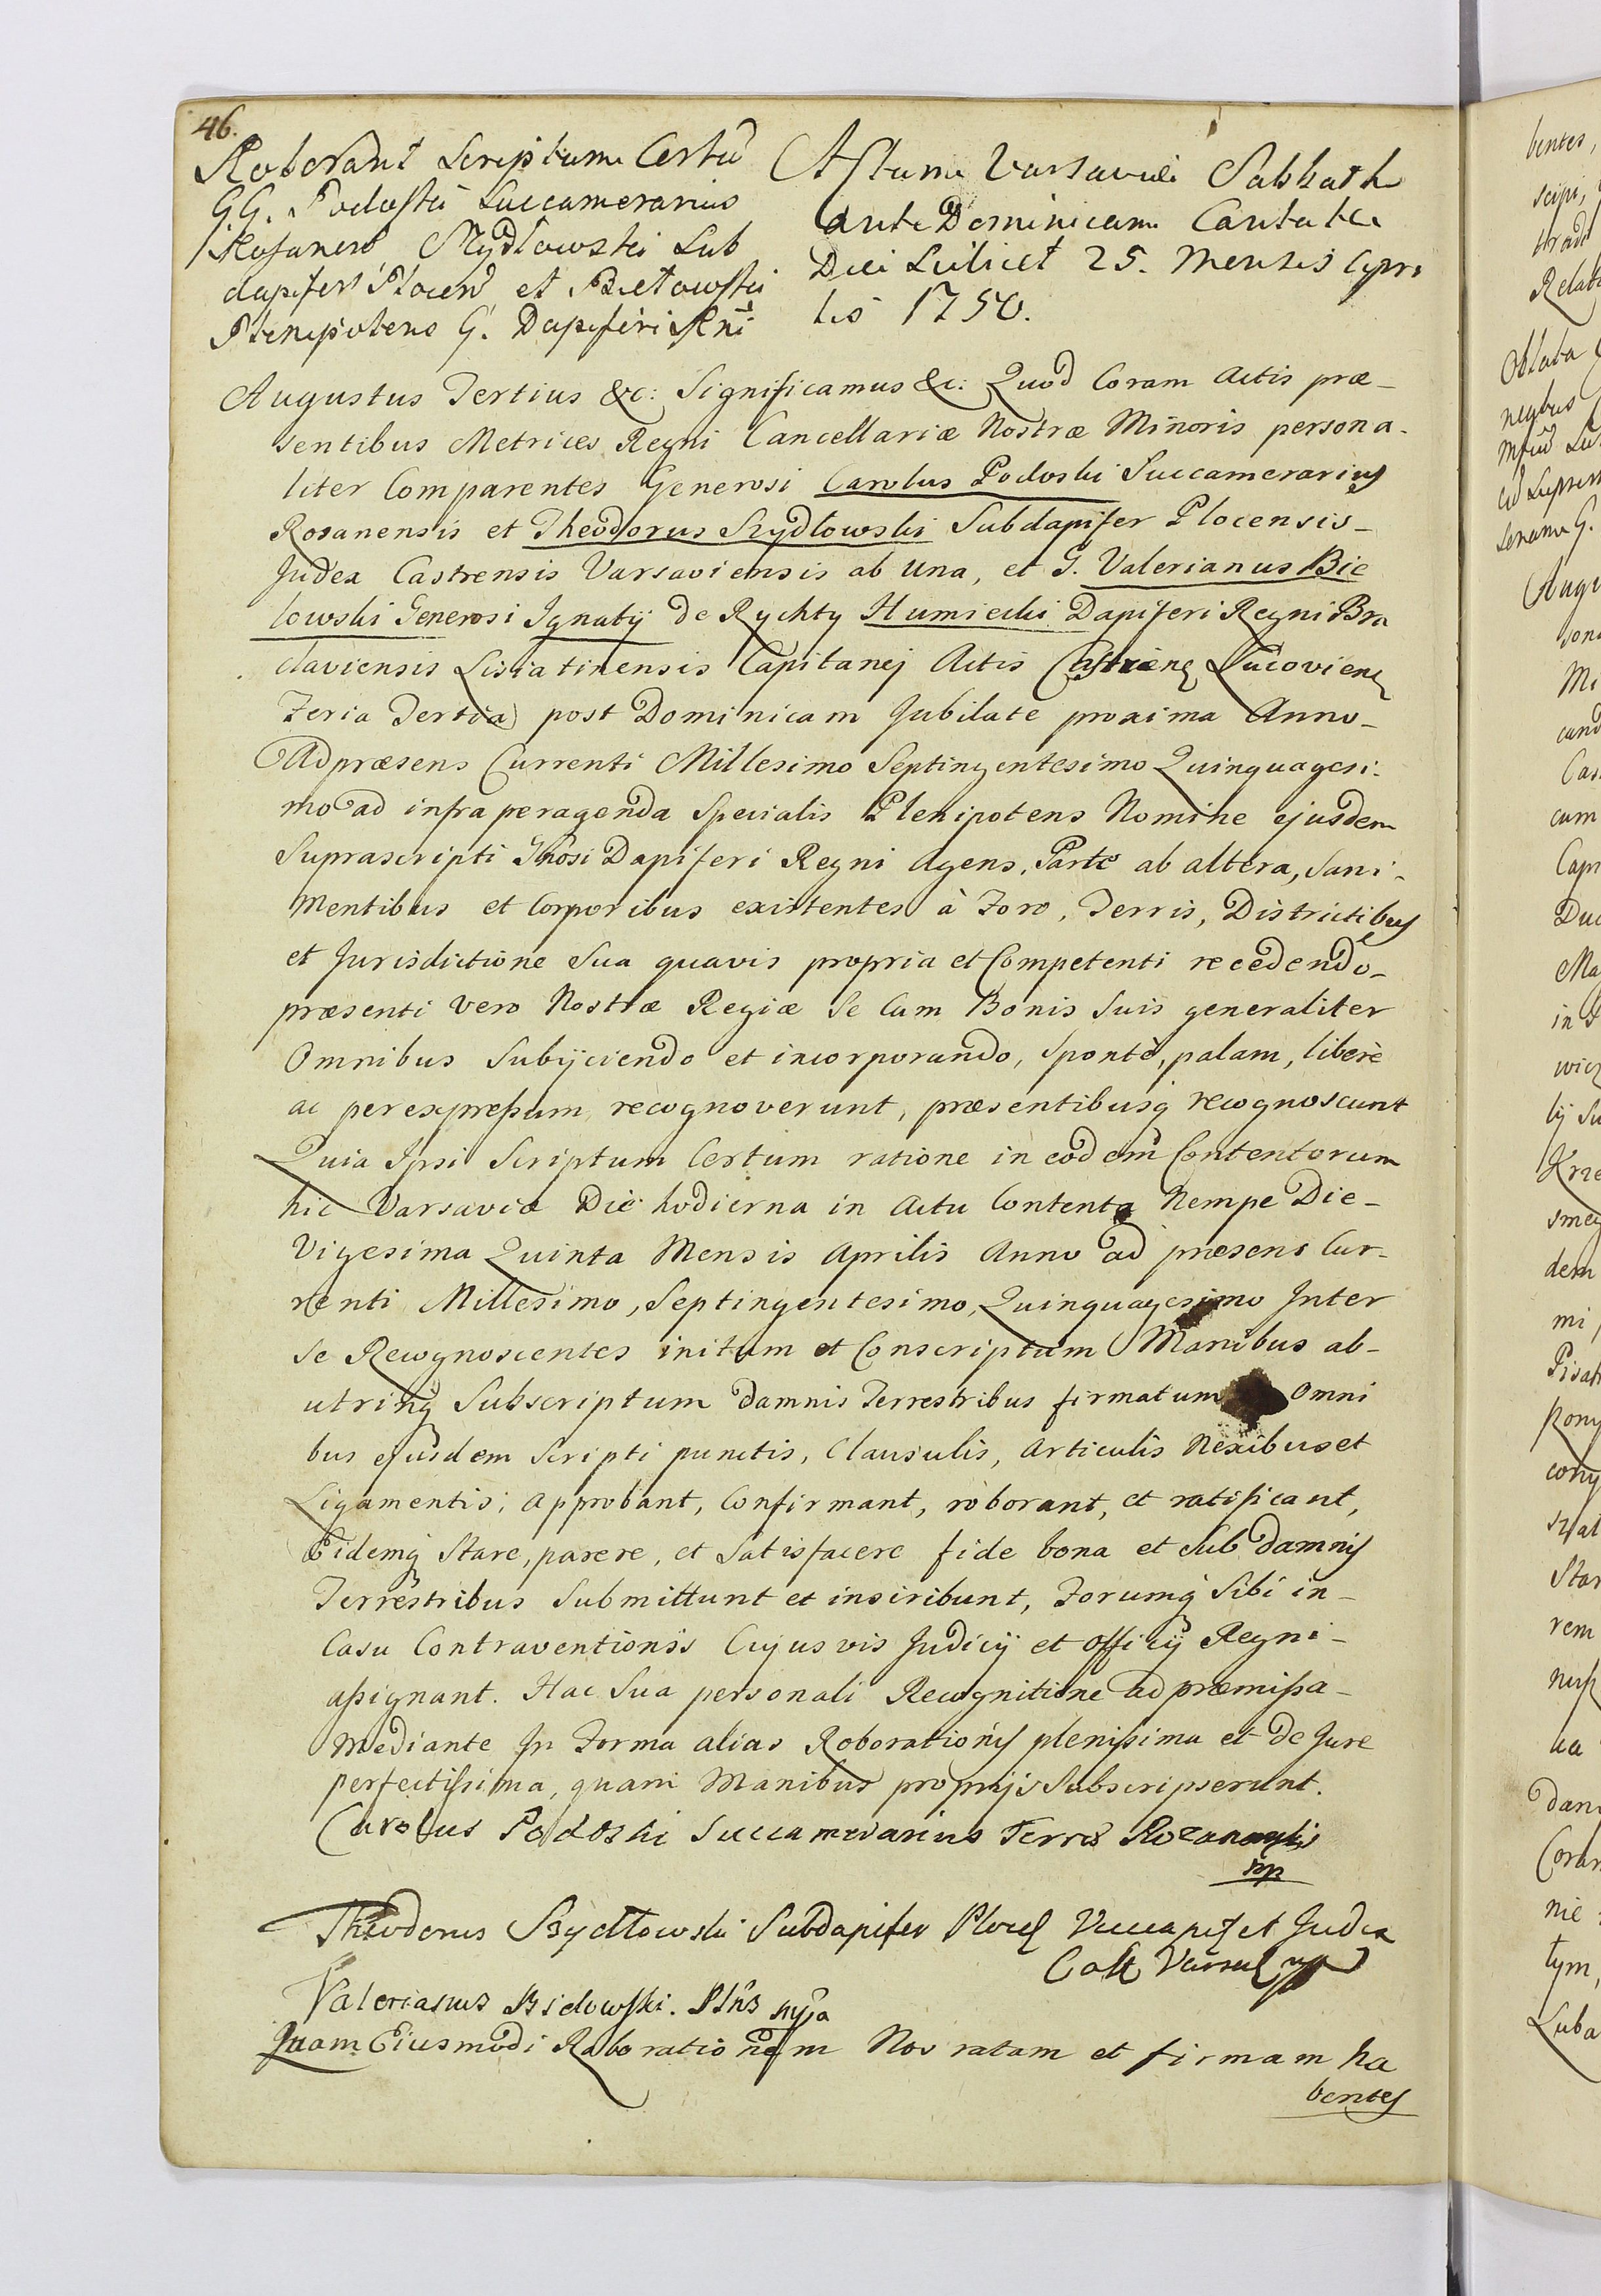 46.
Roborant Scriptum Certũ
G.G. Podoski Succamerarius
Rosanens Szydłowski Sub
dapifer Plocens et Bietowski
Plenipotens G. Dapiferi Rni
Actum Varsaviæ Sabbatho
ante Dominicam Cantate
Die Scilicet 25. Mensis Apri
lis 1750.
Augustus Tertius &c: Significamus &c: Quod Coram Actis præ-
sentibus Metrices Regni Cancellariæ Nostræ Minoris persona-
liter Comparentes Generosi Carolus Podoski Succamerarius
Rosanensis et Theodorus Szydłowski Subdapifer Plocensis-
Judex Castrensis Varsaviensis ab Una, et G. Valerianus Bie
lowski Generosi Ignatij de Rychty Humiecki Dapiferi Regni Bra
claviensis Lisiatinensis Capitanej Actis Castrens Lucoviens
Feria Tertia post Dominicam Jubilate proxima Anno-
Ad præsens Currenti Millesimo Septingentesimo Quinquagesi-
mo ad infra peragenda Specialis Plenipotens Nomine ejusdem
Suprascripti Gnosi Dapiferi Regni Agens, Parte ab altera, Sani-
Mentibus et Corporibus existentes à Foro, Terris, Districtibus
et Jurisdictione Sua quavis propria et Competenti recedendo-
præsenti vero Nostræ Regiæ Se Cum Bonis Suis generaliter
Omnibus Subijciendo et incorporando, Spontè, palam, liberè
ac per expressum recognoverunt, præsentibusq recognoscunt
Quia Ipsi Scriptum Certum ratione in eodem Contentorum
hic Varsaviæ Die hodierna in Actu Contenta Nempe Die-
Vigesima Quinta Mensis Aprilis Anno ad præsens Cur-
renti Millesimo, Septingentesimo, Quinquagesimo Inter
Se Recognoscentes initum et Conscriptum Manibus ab-
utrinq Subscriptum damnis Terrestribus firmatum Omni
bus ejusdem Scripti punctis, Clausulis, Articulis Nexibus et
Ligamentis; Approbant, Confirmant, roborant, et ratificant,
Eidemq Stare, parere, et Satisfacere fide bona et Sub damnis
Terrestribus Submittunt et inscribunt, Forumq Sibi in-
Casu Contraventionis Cujusvis Judicij et Officij Regni-
assignant. Hac Sua personali Recognitione ad præmissa-
Mediante In Forma alias Roborationis plenissima et de Jure
perfectissima, quam Manibus proprijs Subscripserunt.
Carolus Podoski Succamerarius Terræ Rozanensis
mp
Theodorus Szydłowski Subdapifer Ploce Vicecapi et Judex
Cast Varsa mp
Valerianus Bielowski. Plns mpa
Quam Eiusmodi Roborationem Nos ratam et firmam ha
bentes
bentes,
scipi,
tradi
Relati
Oblata
Augu
Mi
Cas
cum
Capi
Duc
Ma
in
wicz
ij Su
Krze
smeg
dem
mi
Pisar
rony
cony
szat
Star
rem
na
dam
Coram
nie
tym,
Luba